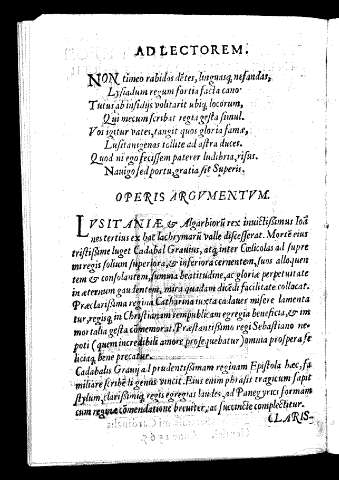 AD LECTOREM.
NON timeo rabidos dētes, linguasq; nefandas,
Lysiadum regum fortia facta cano
Tutus ab insidijs volitarit ubiq; locorum,
Qui mecum scribat regis gesta simul.
Vos igitur vates, tangit quos gloria famæ,
Lusitanigenas tollite ad astra duces.
Quod ni ego fecissem paterer ludibria, risus.
Navigo sed portu, gratia sit Superis.
OPERIS ARGVMENTVM.
LVSITANIÆ & Algarbiorū rex invictissimus Ioā
nes tertius ex hac lachrymarū valle discesserat. Mortē eius
tristissime luget Cadabal Gravius, atq; inter Cælicolas ad supre
mi regis solium superiora, & inferiora cernentem, suos alloquen
tem & consolantem, summa beatitudine, ac gloriæ perpetuitate
in æternum gaudentem, mira quadam dicēdi facilitate collacat.
Præclarissima regina Catharina iuxta cadauer misere lamenta
tur, regisq; in Christianam rempublicam egregia beneficia, & im
mortalia gesta cōmemorat. Præstantissimo regi Sebastiano ne-
poti (quem incredibili amore prosequebatur) omnia prospera fe
liciaq; bene precatur.
Cadabalis Gravij ad prudentissimam reginam Epistola hæc, fa
miliare scribēdi genus vincit. Eius enim phrasis tragicum sapit
stylum, clarissimiq; regis egregias laudes, ad Panegyrici formam
cum reginæ cōmendatione breuiter, ac succincte complectitur.
CLARIS-